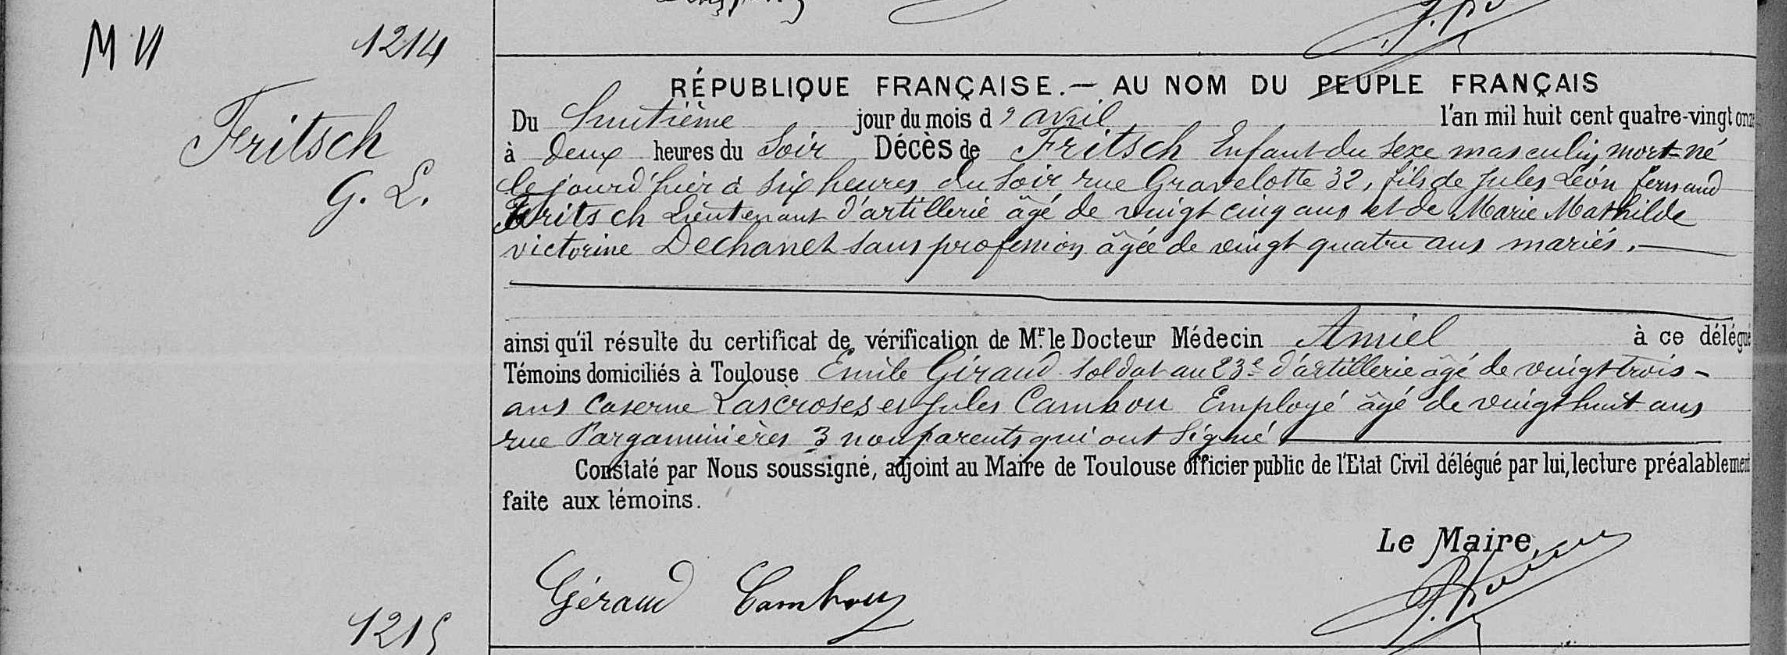 M VI 1214
Fritsch
G. L.
RÉPUBLIQUE FRANÇAISE. — AU NOM DU PEUPLE FRANÇAIS
Du huitième jour du mois d'avril l'an mil huit cent quatre-vingt onze
à deux heures du soir Décès de Fritsch Enfant du sexe masculin, mort-né
le jourd'hier à six heures du soir rue Gravelotte 32, fils de Jules Léon fernand
Fritsch Lieutenant d'artillerie âgé de vingt cinq ans et de Marie Mathilde
victorine Dechanet sans profession, âgée de vingt quatre ans mariés. —
ainsi qu'il résulte du certificat de vérification de Mr. le Docteur Médecin Amiel à ce délégué
Témoins domiciliés à Toulouse Emile Géraud soldat au 23e d'artillerie âgé de vingt trois -
ans Caserne Lascroses et Jules Cambou Employé âgé de vingt huit ans
rue Pargaminières 3 non parents qui ont signé
Constaté par Nous soussigné, adjoint au Maire de Toulouse officier public de l'Etat Civil délégué par lui, lecture préalablement
faite aux témoins.
Le Maire
Géraud Cambou
1215